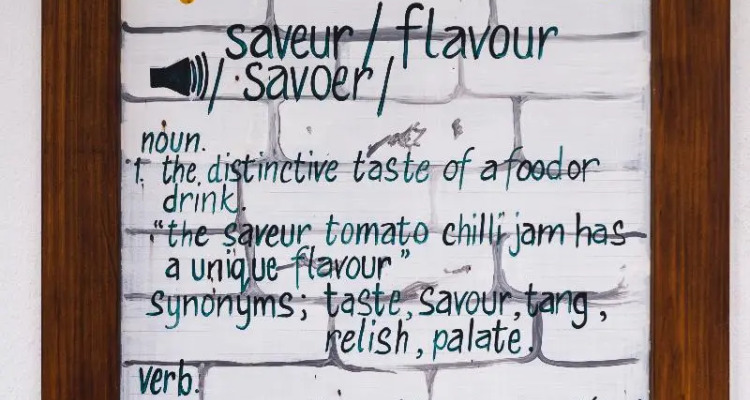 saveur / flavour
/ ·savoer/
noun.
1. the distinctive taste of a food or
drink.
"the saveur tomato chilli jam has
a unique flavour"
synonyms; taste, savour, tang,
relish, palate.
verb.